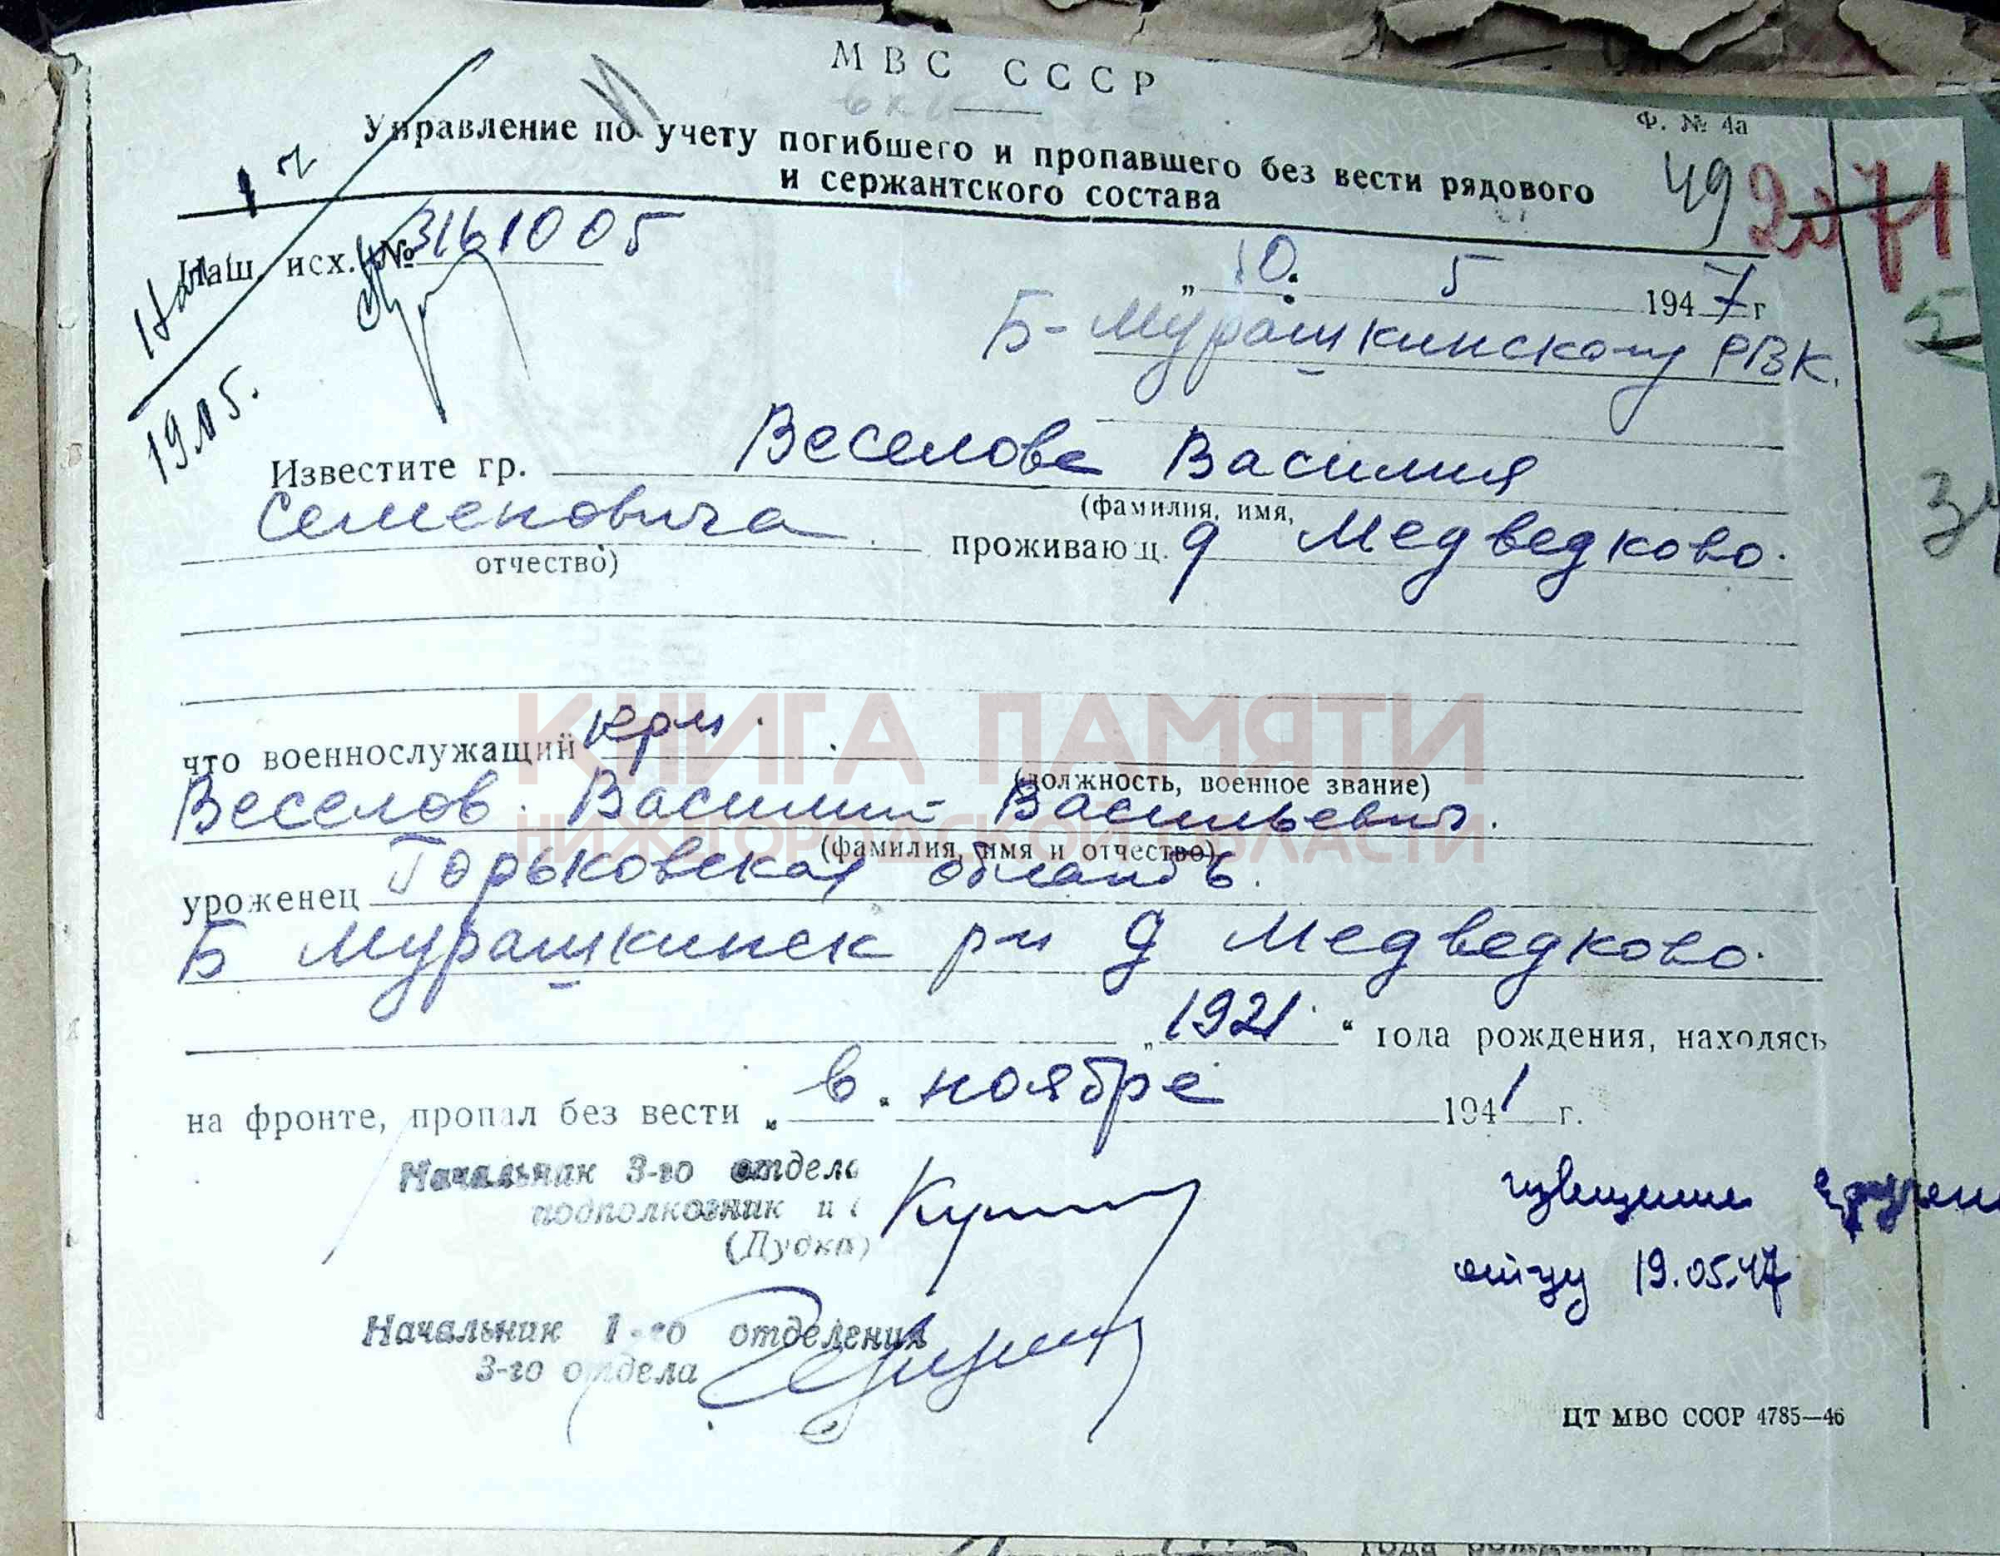 МВС СССР
Ф. № 4а
Управление по учету погибшего и пропавшего без вести рядового
и сержантского состава
49 2071
Наш. исх. № 3161005
„ 10. 5 1947 г
Б-Мурашкинскому РВК.
19/05.
Известите гр. Веселова Василия
(фамилия, имя,
Семеновича проживающ. д Медведково.
отчество)
что военнослужащий
(должность, военное звание)
Веселов Василий Васильевич.
(фамилия, имя и отчество)
уроженец Горьковская область.
Б Мурашкинск рн д Медведково.
„ 1921 “ года рождения, находясь
на фронте, пропал без вести „ в “ ноябре 1941 г.
Начальник 3-го отдела
подполковник и/с
(Дудка)
извещение вручен
отцу 19.05.47
Начальник 1-го отделения
3-го отдела
ЦТ МВС СССР 4785—46
КНИГА ПАМЯТИ
НИЖЕГОРОДСКОЙ ОБЛАСТИ